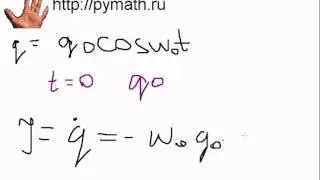 http://pymath.ru
q = q₀cosω₀t
t=0 q₀
J = q̇ = - ω₀ q₀